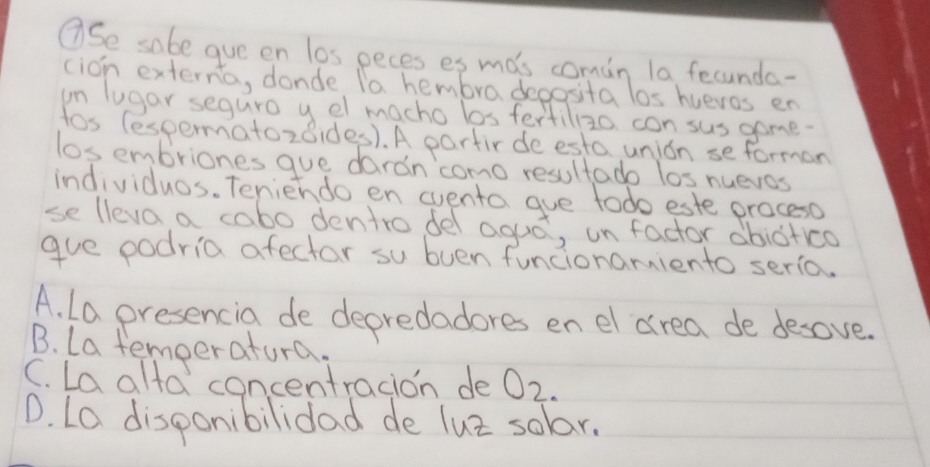 ⑦ Se sabe que en los peces es más común la fecunda-
ción externa, donde la hembra deposita los huevos en
un lugar seguro y el macho los fertiliza con sus game-
tos (espermatozóides). A partir de esta unión se forman
los embriones que darán como resultado los nuevos
individuos. Teniendo en cuenta que todo este proceso
se lleva a cabo dentro del agua, un factor abiótico
que podría afectar su buen funcionamiento sería.
A. La presencia de depredadores en el área de desove.
B. La temperatura.
C. La alta concentración de O2.
D. La disponibilidad de luz solar.